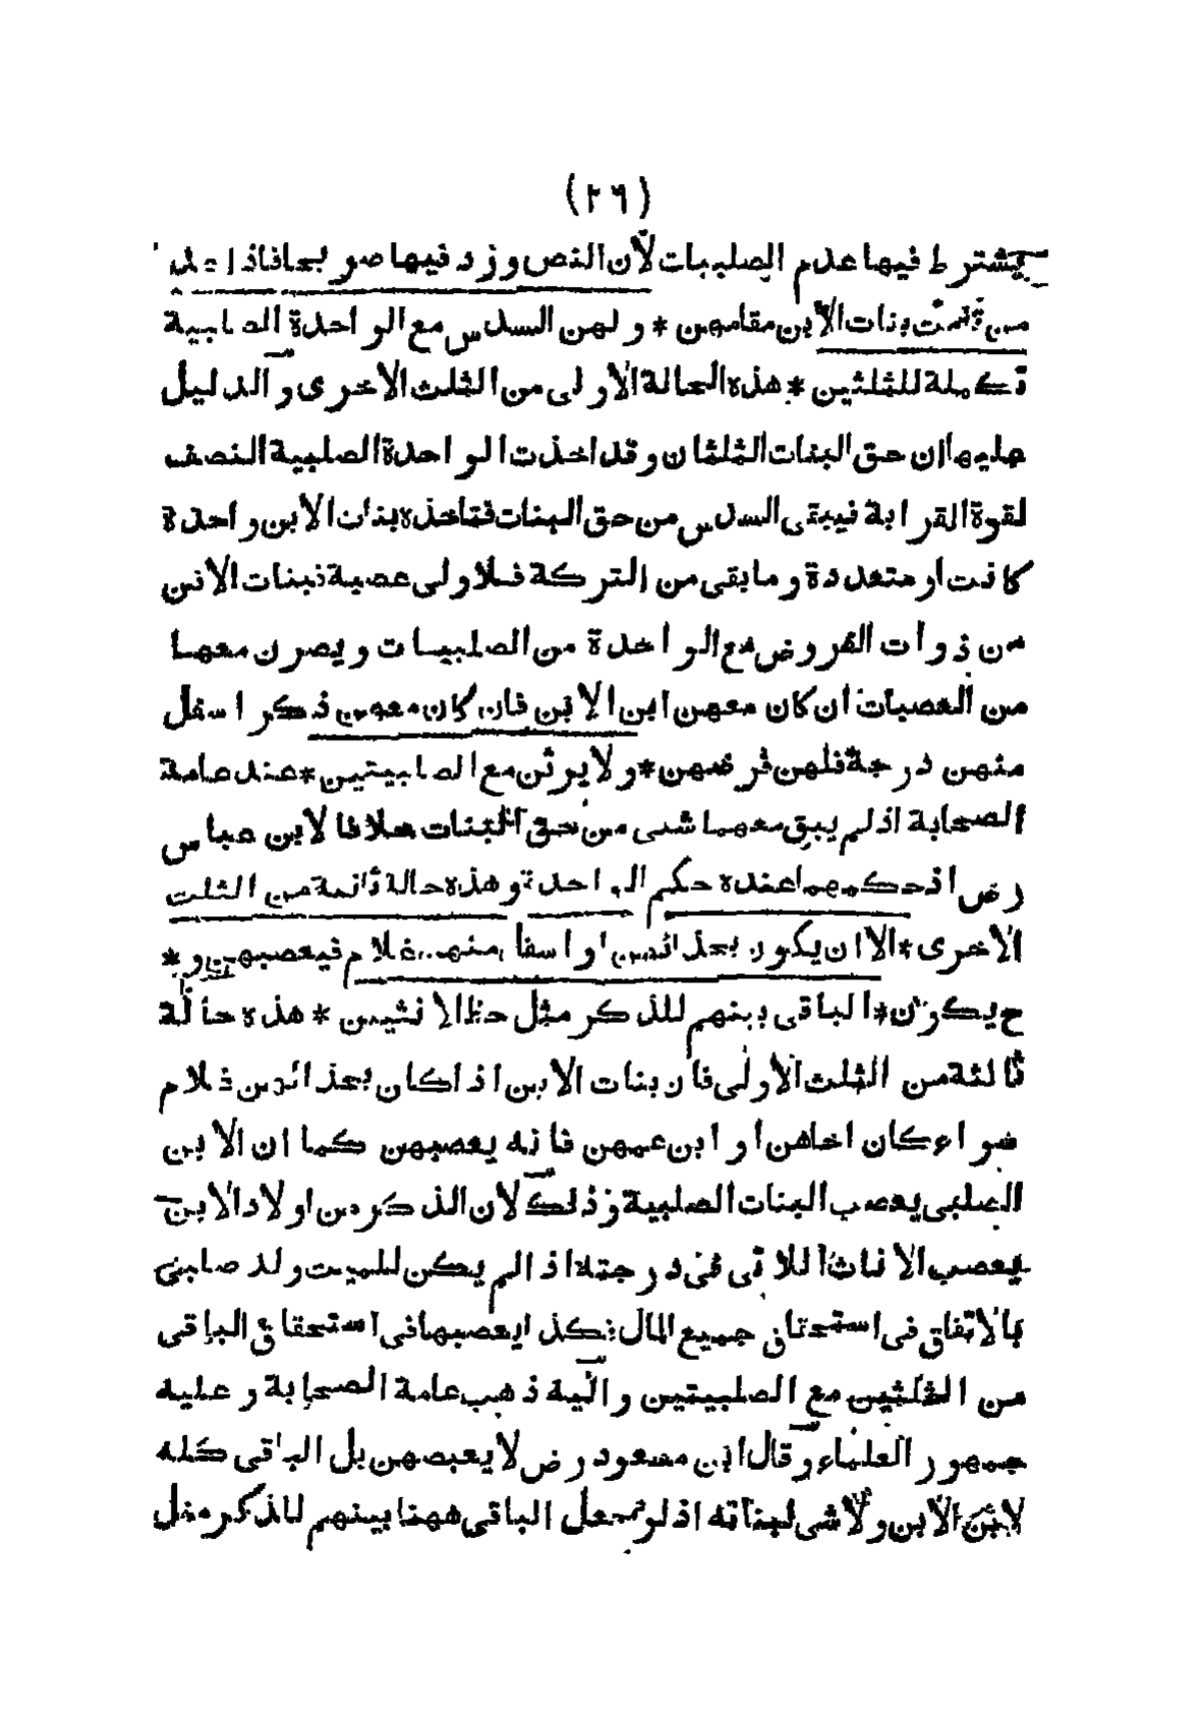 (٢٦)
يشترط فيها عدم الصلبيات لان النص ورد فيها صريحا فاذا
قامت بنات الابن مقامهن * ولهن السدس مع الواحدة الصلبية
تكملة للثلثين * هذه الحالة الاولى من الثلث الاخرى والدليل
عليها ان حق البنات الثلثان وقد اخذت الواحدة الصلبية النصف
لقوة القرابة فيبقى السدس من حق البنات فتاخذه بنات الابن واحدة
كانت او متعددة وما بقى من التركة فلاولى عصبة فبنات الابن
من ذوات الفروض مع الواحدة من الصلبيات ويصرن معها
من العصبات ان كان معهن ابن الابن فان كان معهن ذكر اسفل
منهن درجة فلهن فرضهن * ولا يرثن مع الصلبيتين * عند عامة
الصحابة اذ لم يبق معهما شى من حق البنات خلافا لابن عباس
رض اذ حكمهما عنده حكم الواحدة وهذه حالة ثانية من الثلث
الاخرى * الا ان يكون بحذائهن او اسفل منهن غلام فيعصبهن و *
ح يكون * الباقى بينهم للذكر مثل حظ الانثيين * هذه حالة
ثالثة من الثلث الاولى فان بنات الابن اذا كان بحذائهن غلام
سواء كان اخاهن او ابن عمهن فانه يعصبهن كما ان الابن
الصلبى يعصب البنات الصلبية وذلك لان الذكر من اولاد الابن
يعصب الاناث اللاتى فى درجته اذا لم يكن للميت ولد صلبى
بالاتفاق فى استحقاق جميع المال فكذا يعصبها فى استحقاق الباقى
من الثلثين مع الصلبيتين واليه ذهب عامة الصحابة وعليه
جمهور العلماء وقال ابن مسعود رض لا يعصبهن بل الباقى كله
لابن الابن ولا شى لبناته اذ لو نجعل الباقى ههنا بينهم للذكر مثل